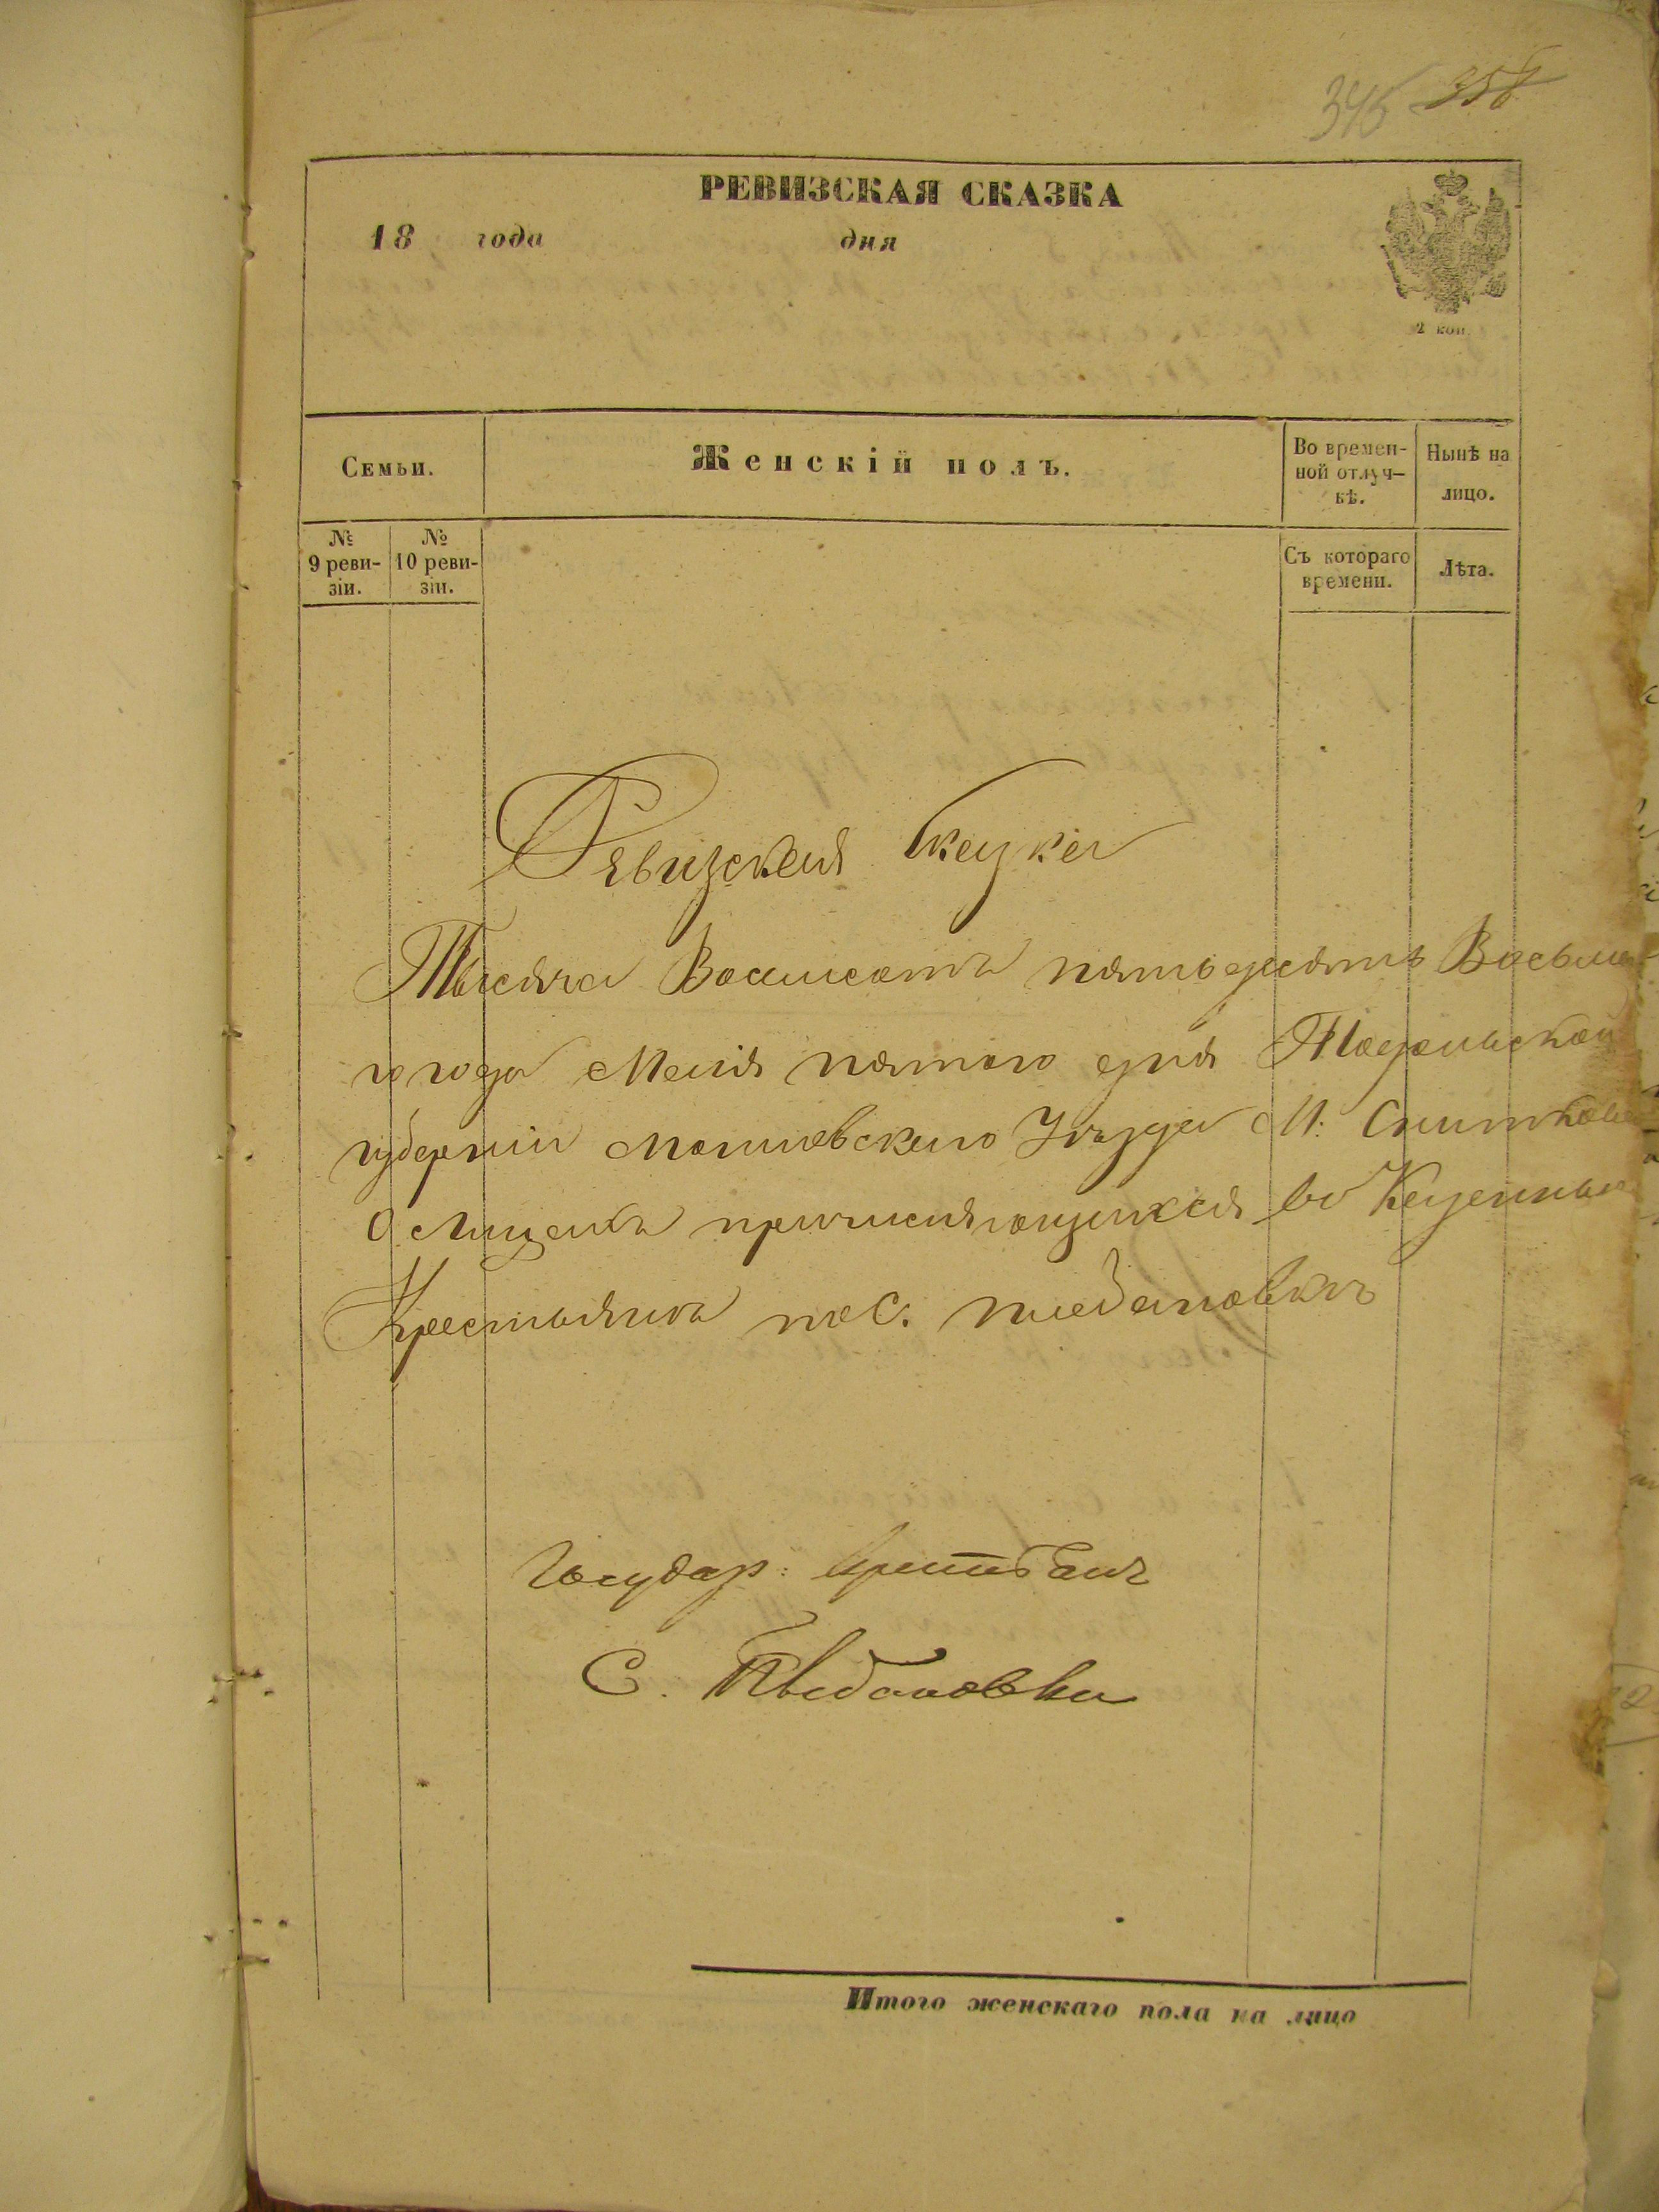 345 358
РЕВИЗСКАЯ СКАЗКА
18 года дня
2 коп.
Семьи.
Женскій полъ.
Во времен-
ной отлуч-
кѣ.
Нынѣ на
лицо.
№
9 реви-
зіи.
№
10 реви-
зіи.
Съ котораго
времени.
Лѣта.
Рявизская Сказка
Тысяча Восимсотъ пятьдесятъ Восьма
го года Маія пятого дня Подольской
губерніи Могилевскаго Уѣзда М: Сниткова
О Лицахъ причисляющихся во Казенных
Крестьянъ по С.
Государ: Крестьянъ
С.
Итого женскаго пола на лицо